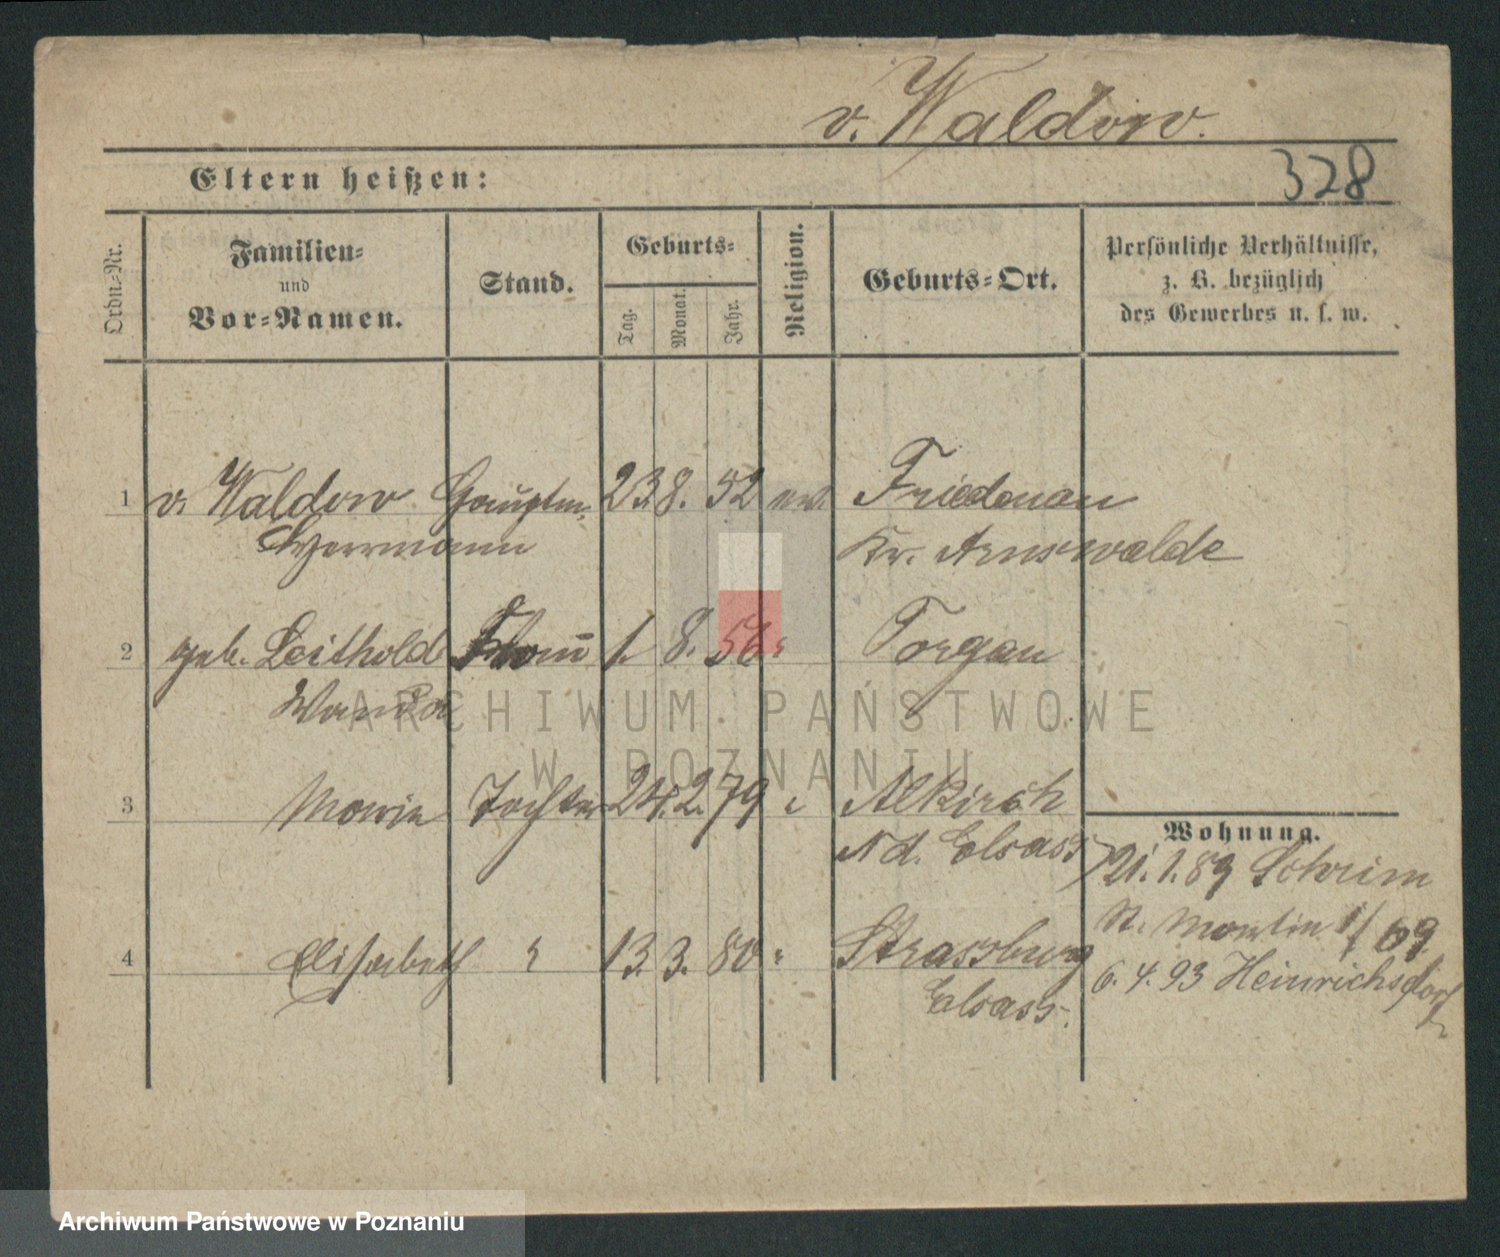 v. Waldow.
328
Eltern heißen:
Ordn.-Nr.
Familien-
und
Vor-Namen.
Stand.
Geburts-
Tag.
Monat.
Jahr.
Religion.
Geburts-Ort.
Persönliche Verhältnisse,
z. B. bezüglich
des Gewerbes u. s. w.
1 v. Waldow Hauptm. 23. 8. 52 ev. Friedenau
Herrmann Kr. Arnswalde
2 geb. Leithold Frau 1. 8. 56 " Torgau
Wanda
3 Marie Tochter 24. 2. 79 " Altkirch
Nd. Elsass
4 Elisabeth " 13. 3. 80 " Strassburg
Elsass.
Wohnung.
21. 1. 89 Schrim
St. Martin 69
6. 4. 93 Heinrichsdorf
ARCHIWUM PAŃSTWOWE
W POZNANIU
Archiwum Państwowe w Poznaniu